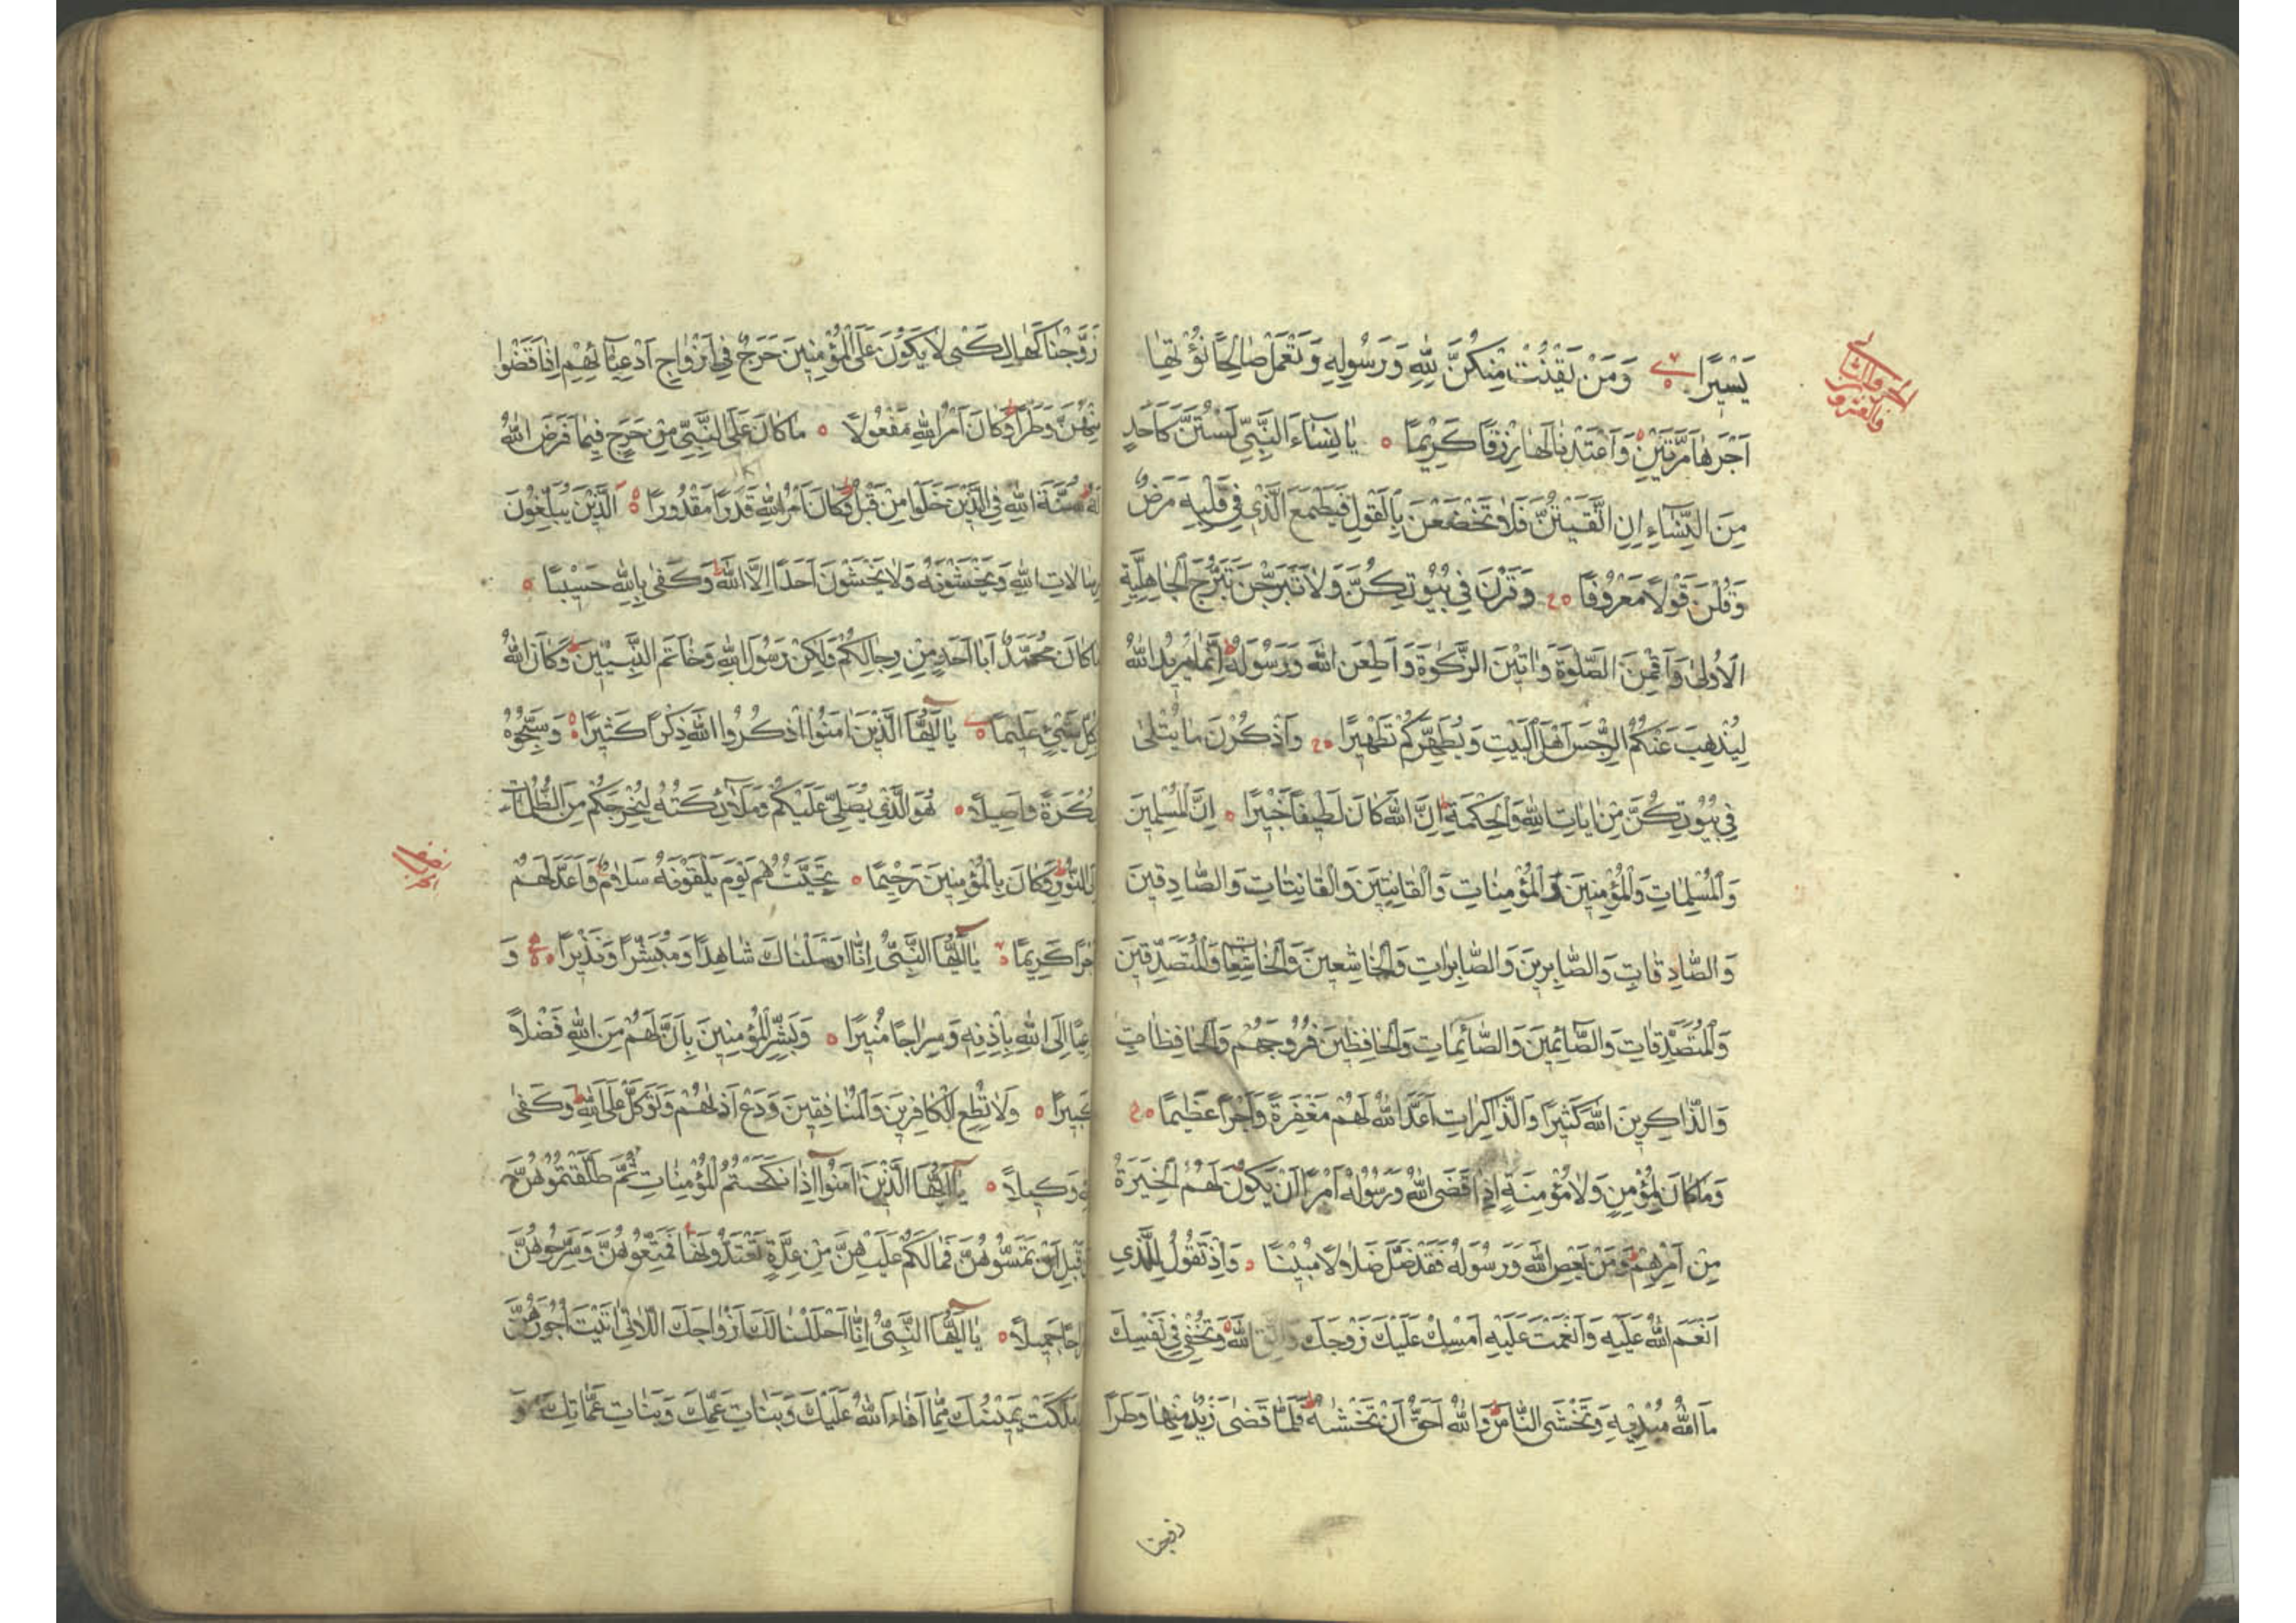 يَسِيرًا وَمَنْ يَقْنُتْ مِنْكُنَّ لِلّٰهِ وَرَسُولِهِ وَتَعْمَلْ صَالِحًا نُؤْتِهَا
اَجْرَهَا مَرَّتَيْنِ وَاَعْتَدْنَا لَهَا رِزْقًا كَرِيْمًا ۝ يَا نِسَاءَ النَّبِيِّ لَسْتُنَّ كَاَحَدٍ
مِنَ النِّسَاءِ اِنِ اتَّقَيْتُنَّ فَلَا تَخْضَعْنَ بِالْقَوْلِ فَيَطْمَعَ الَّذِي فِي قَلْبِهِ مَرَضٌ
وَقُلْنَ قَوْلًا مَعْرُوفًا ۝ وَقَرْنَ فِي بُيُوتِكُنَّ وَلَا تَبَرَّجْنَ تَبَرُّجَ الْجَاهِلِيَّةِ
الْاُولٰى وَاَقِمْنَ الصَّلٰوةَ وَاٰتِيْنَ الزَّكٰوةَ وَاَطِعْنَ اللّٰهَ وَرَسُولَهُ اِنَّمَا يُرِيْدُ اللّٰهُ
لِيُذْهِبَ عَنْكُمُ الرِّجْسَ اَهْلَ الْبَيْتِ وَيُطَهِّرَكُمْ تَطْهِيْرًا ۝ وَاذْكُرْنَ مَا يُتْلٰى
فِي بُيُوتِكُنَّ مِنْ اٰيَاتِ اللّٰهِ وَالْحِكْمَةِ اِنَّ اللّٰهَ كَانَ لَطِيْفًا خَبِيْرًا ۝ اِنَّ الْمُسْلِمِيْنَ
وَالْمُسْلِمَاتِ وَالْمُؤْمِنِيْنَ وَالْمُؤْمِنَاتِ وَالْقَانِتِيْنَ وَالْقَانِتَاتِ وَالصَّادِقِيْنَ
وَالصَّادِقَاتِ وَالصَّابِرِيْنَ وَالصَّابِرَاتِ وَالْخَاشِعِيْنَ وَالْخَاشِعَاتِ وَالْمُتَصَدِّقِيْنَ
وَالْمُتَصَدِّقَاتِ وَالصَّائِمِيْنَ وَالصَّائِمَاتِ وَالْحَافِظِيْنَ فُرُوجَهُمْ وَالْحَافِظَاتِ
وَالذَّاكِرِيْنَ اللّٰهَ كَثِيْرًا وَالذَّاكِرَاتِ اَعَدَّ اللّٰهُ لَهُمْ مَغْفِرَةً وَاَجْرًا عَظِيْمًا ۝
وَمَا كَانَ لِمُؤْمِنٍ وَلَا مُؤْمِنَةٍ اِذَا قَضَى اللّٰهُ وَرَسُولُهُ اَمْرًا اَنْ يَكُوْنَ لَهُمُ الْخِيَرَةُ
مِنْ اَمْرِهِمْ وَمَنْ يَعْصِ اللّٰهَ وَرَسُولَهُ فَقَدْ ضَلَّ ضَلَالًا مُبِيْنًا ۝ وَاِذْ تَقُولُ لِلَّذِي
اَنْعَمَ اللّٰهُ عَلَيْهِ وَاَنْعَمْتَ عَلَيْهِ اَمْسِكْ عَلَيْكَ زَوْجَكَ وَاتَّقِ اللّٰهَ وَتُخْفِي فِي نَفْسِكَ
مَا اللّٰهُ مُبْدِيْهِ وَتَخْشَى النَّاسَ وَاللّٰهُ اَحَقُّ اَنْ تَخْشٰيهُ فَلَمَّا قَضٰى زَيْدٌ مِنْهَا وَطَرًا
زَوَّجْنَاكَهَا لِكَىْ لَا يَكُوْنَ عَلَى الْمُؤْمِنِيْنَ حَرَجٌ فِي اَزْوَاجِ اَدْعِيَائِهِمْ اِذَا قَضَوْا
مِنْهُنَّ وَطَرًا وَكَانَ اَمْرُ اللّٰهِ مَفْعُولًا ۝ مَا كَانَ عَلَى النَّبِيِّ مِنْ حَرَجٍ فِيْمَا فَرَضَ اللّٰهُ
لَهُ سُنَّةَ اللّٰهِ فِي الَّذِيْنَ خَلَوْا مِنْ قَبْلُ وَكَانَ اَمْرُ اللّٰهِ قَدَرًا مَقْدُورًا ۝ اَلَّذِيْنَ يُبَلِّغُوْنَ
رِسَالَاتِ اللّٰهِ وَيَخْشَوْنَهُ وَلَا يَخْشَوْنَ اَحَدًا اِلَّا اللّٰهَ وَكَفٰى بِاللّٰهِ حَسِيْبًا ۝
مَا كَانَ مُحَمَّدٌ اَبَا اَحَدٍ مِنْ رِجَالِكُمْ وَلٰكِنْ رَسُولَ اللّٰهِ وَخَاتَمَ النَّبِيِّيْنَ وَكَانَ اللّٰهُ
بِكُلِّ شَيْءٍ عَلِيْمًا ۝ يَا اَيُّهَا الَّذِيْنَ اٰمَنُوا اذْكُرُوا اللّٰهَ ذِكْرًا كَثِيْرًا ۝ وَسَبِّحُوْهُ
بُكْرَةً وَاَصِيْلًا ۝ هُوَ الَّذِي يُصَلِّي عَلَيْكُمْ وَمَلَائِكَتُهُ لِيُخْرِجَكُمْ مِنَ الظُّلُمَاتِ
اِلَى النُّوْرِ وَكَانَ بِالْمُؤْمِنِيْنَ رَحِيْمًا ۝ تَحِيَّتُهُمْ يَوْمَ يَلْقَوْنَهُ سَلَامٌ وَاَعَدَّ لَهُمْ
اَجْرًا كَرِيْمًا ۝ يَا اَيُّهَا النَّبِيُّ اِنَّا اَرْسَلْنَاكَ شَاهِدًا وَمُبَشِّرًا وَنَذِيْرًا ۝ وَ
دَاعِيًا اِلَى اللّٰهِ بِاِذْنِهِ وَسِرَاجًا مُنِيْرًا ۝ وَبَشِّرِ الْمُؤْمِنِيْنَ بِاَنَّ لَهُمْ مِنَ اللّٰهِ فَضْلًا
كَبِيْرًا ۝ وَلَا تُطِعِ الْكَافِرِيْنَ وَالْمُنَافِقِيْنَ وَدَعْ اَذٰيهُمْ وَتَوَكَّلْ عَلَى اللّٰهِ وَكَفٰى
بِاللّٰهِ وَكِيْلًا ۝ يَا اَيُّهَا الَّذِيْنَ اٰمَنُوا اِذَا نَكَحْتُمُ الْمُؤْمِنَاتِ ثُمَّ طَلَّقْتُمُوهُنَّ
مِنْ قَبْلِ اَنْ تَمَسُّوْهُنَّ فَمَا لَكُمْ عَلَيْهِنَّ مِنْ عِدَّةٍ تَعْتَدُّوْنَهَا فَمَتِّعُوْهُنَّ وَسَرِّحُوْهُنَّ
سَرَاحًا جَمِيْلًا ۝ يَا اَيُّهَا النَّبِيُّ اِنَّا اَحْلَلْنَا لَكَ اَزْوَاجَكَ اللَّاتِي اٰتَيْتَ اُجُوْرَهُنَّ
مَلَكَتْ يَمِيْنُكَ مِمَّا اَفَاءَ اللّٰهُ عَلَيْكَ وَبَنَاتِ عَمِّكَ وَبَنَاتِ عَمَّاتِكَ وَ